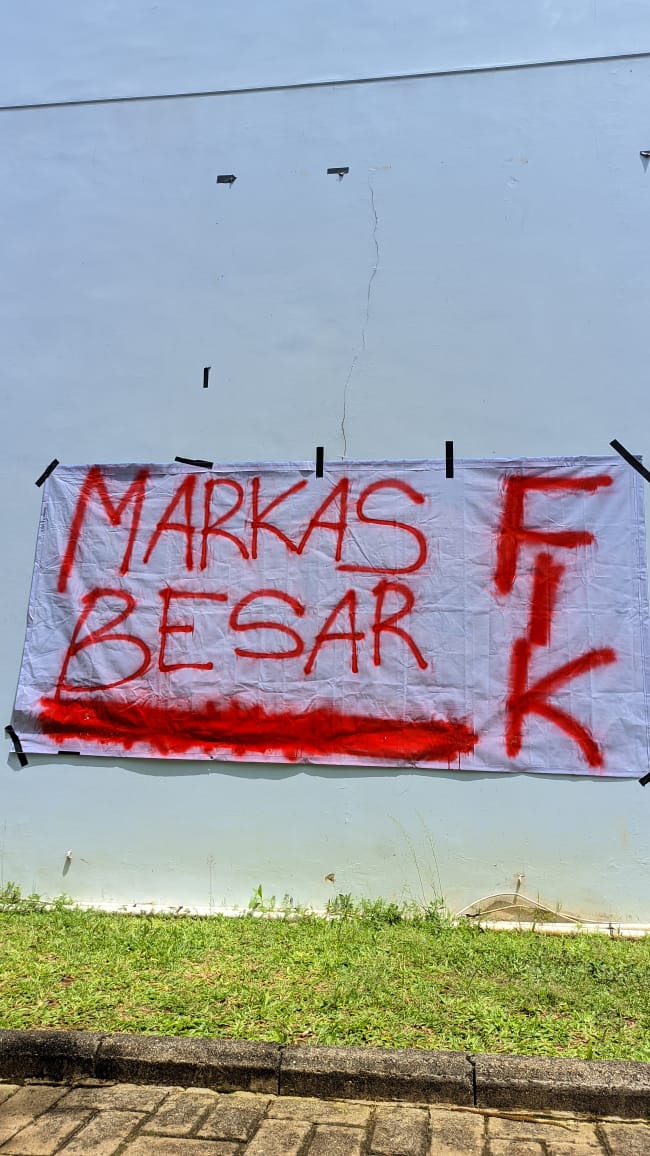 MARKAS
BESAR
FIK